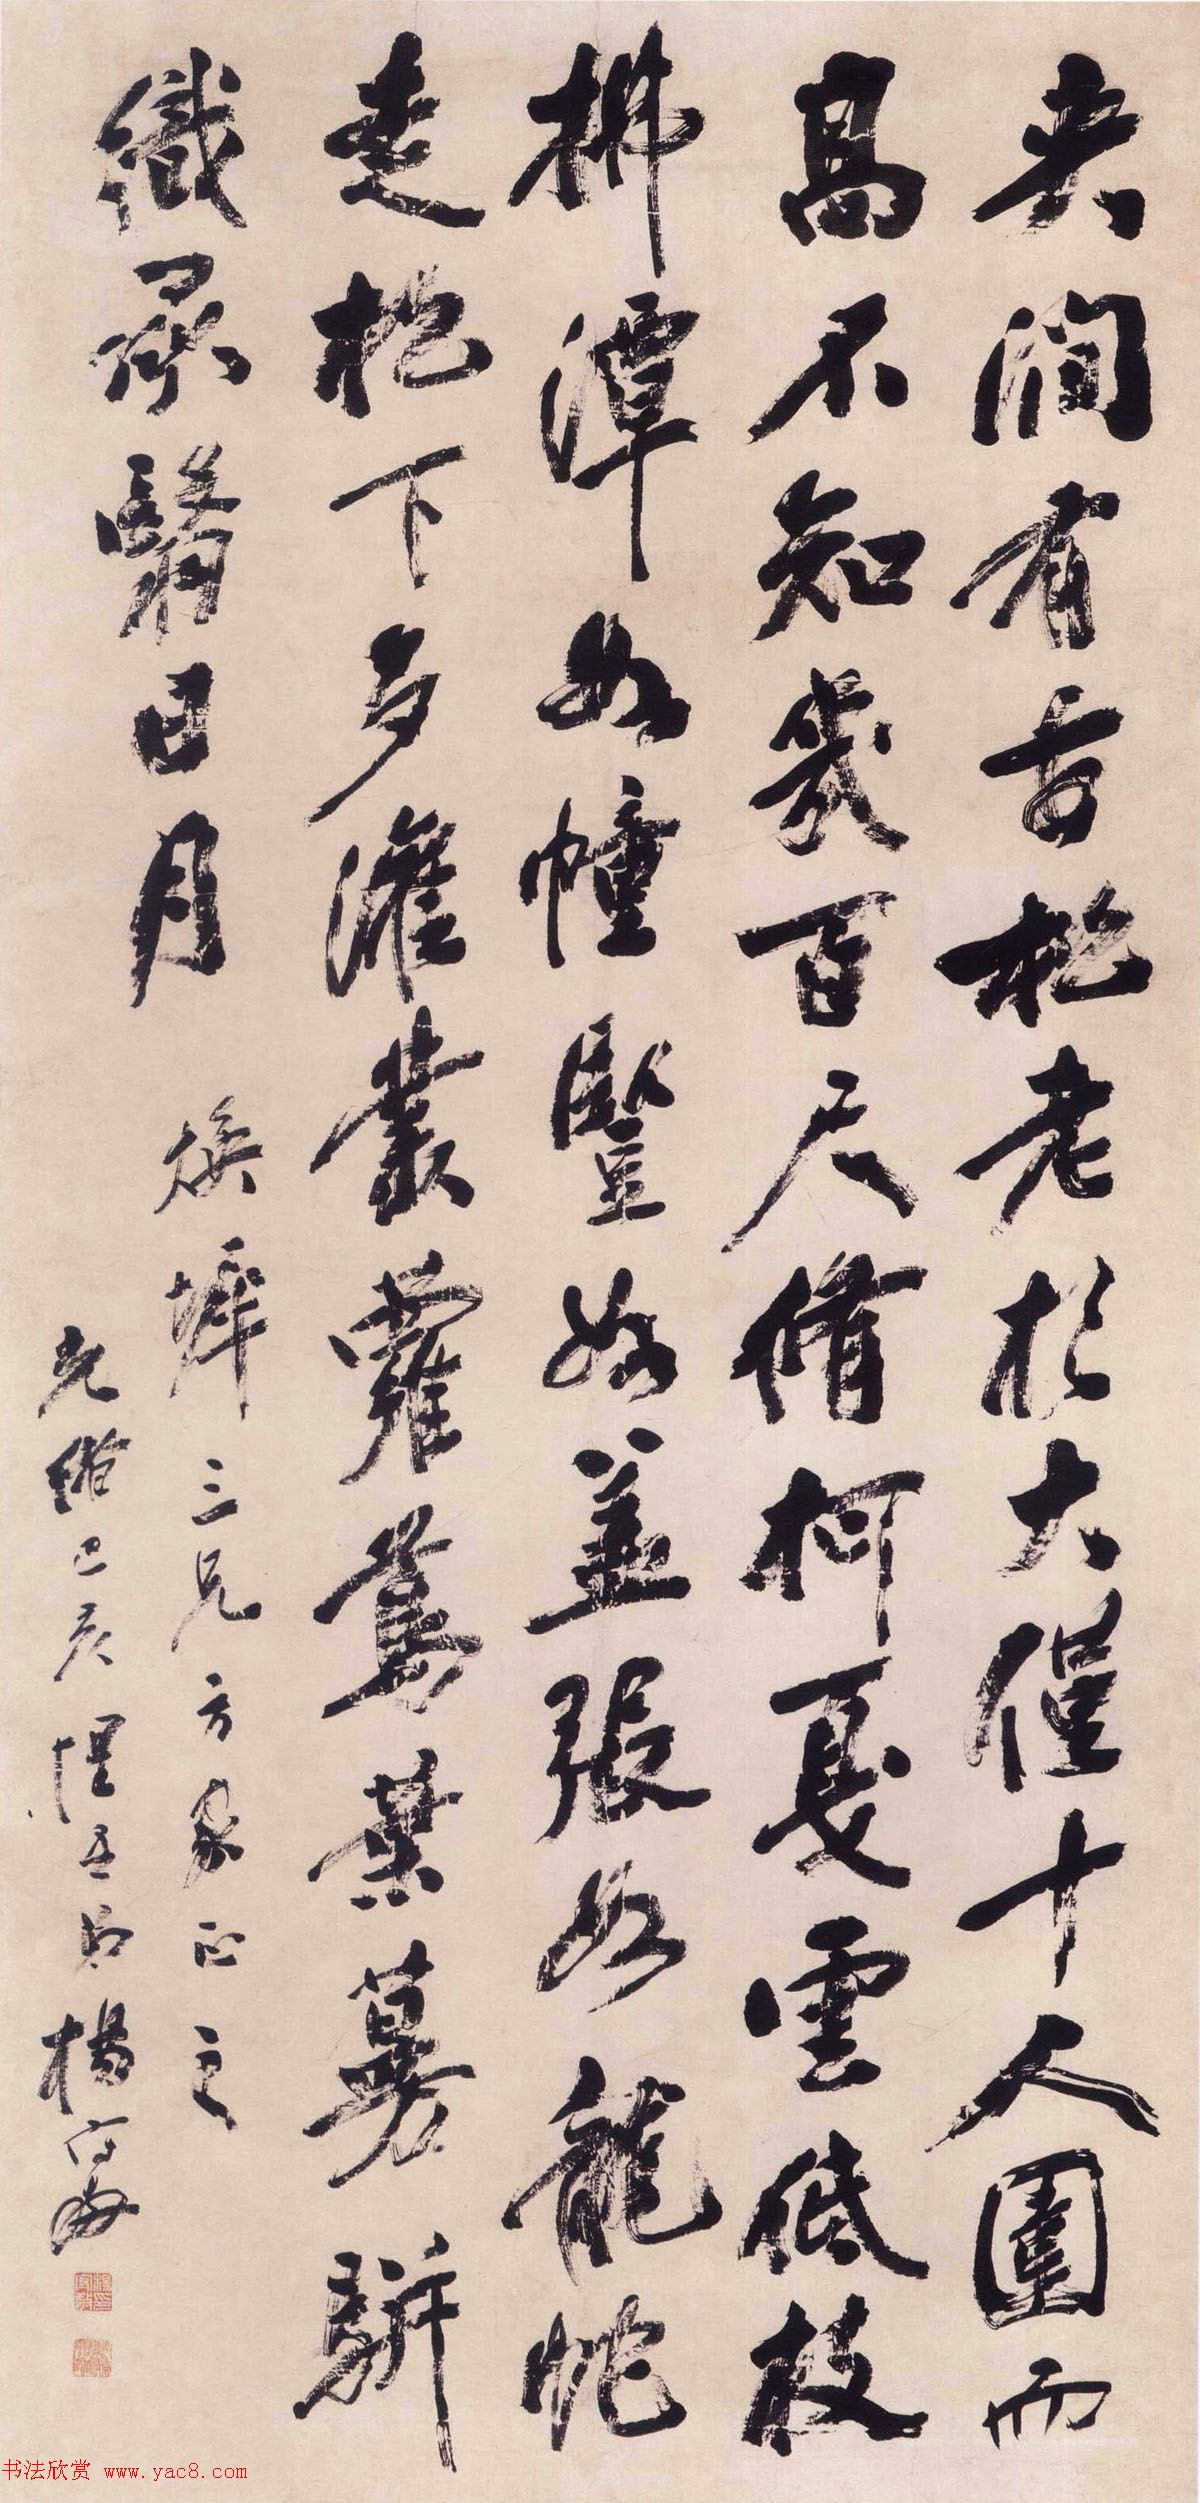 夾澗有古松老杉大僅十人圍而
高不知幾百尺脩柯戛雲低枝
拂潭如幢豎如蓋張如龍蛇
走松下多灌叢蘿蔦葉蔓駢
織承翳日月
煥墀三兄方家正之
光緒己亥惺吾弟楊守敬
书法欣赏 www.yac8.com